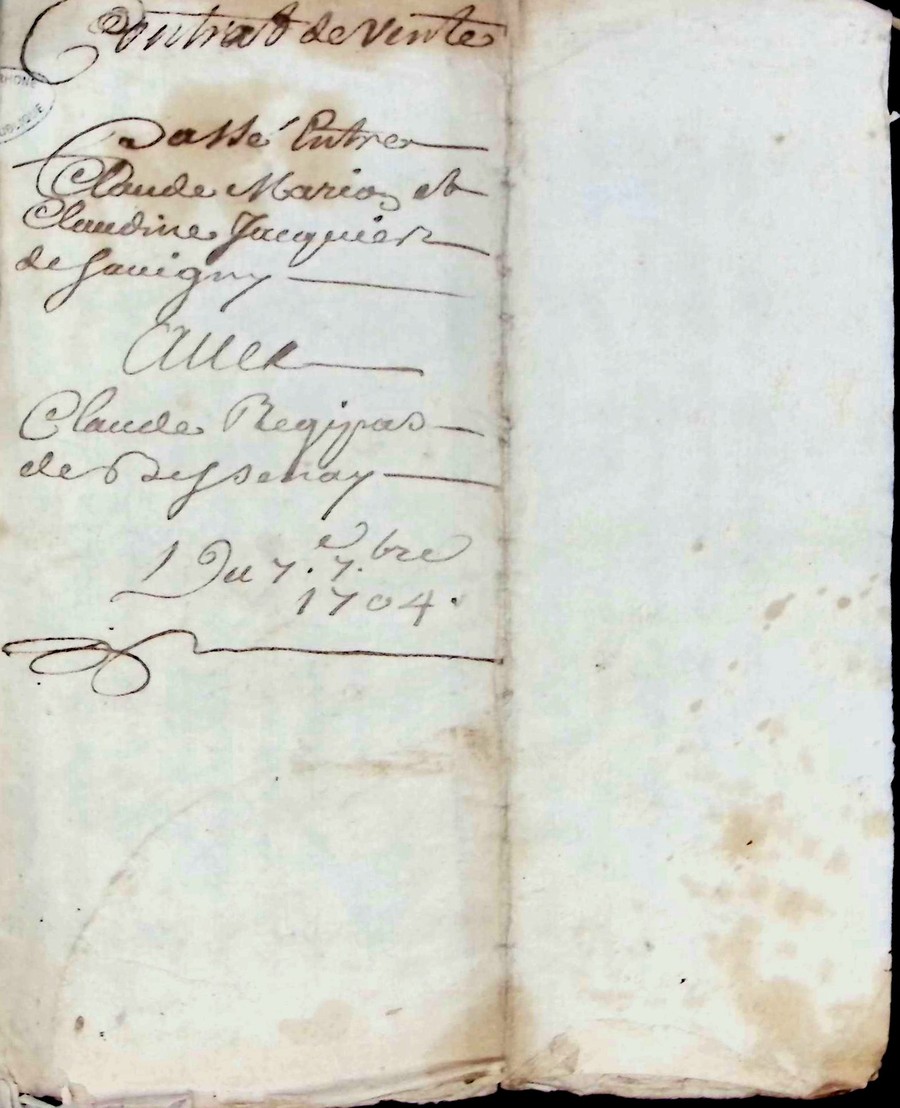 Contrat de vente
Passé Entre
Claude Marion et
Claudine Jacquier
de Savigny
Avec
Claude Regipas
de Bessenay
Du 7.e 7.bre
1704.